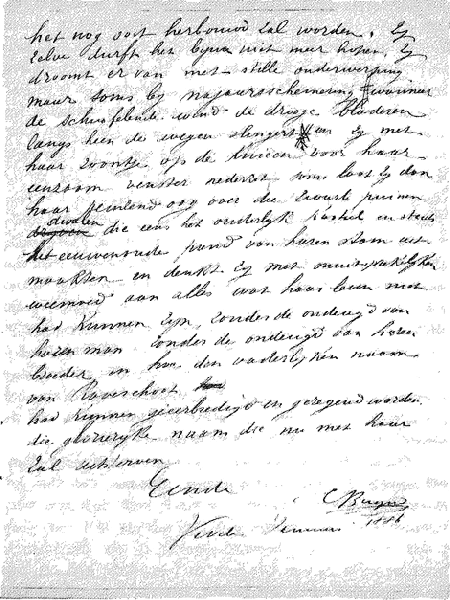 het nog ooit herbouwd zal worden. Zy
zelve durft het byna niet meer hopen. Zy
droomt er van met stille onderwerping
maar soms by najaarsschemering, wanneer
de schuifelende wind de drooge bladeren
langs heen de wegen slingert en zy met
haar zoontje op de knieën voor haar
eenzaam venster nederzit soms laat zy dan
haar peinzend oog over de zwarte puinen
dwalen die eens het ouderlyk kasteel en
het eeuwenoude pand van haren stam uit
maakten en denkt zy met onuitsprekelyken
weemoed aan alles wat haar leven met
had kunnen zyn, zonder de ondeugd van
haren man zonder de ondeugd van haren
broeder, en hoe den vaderlyken naam
van Raveschoot
had kunnen geeerbiedigd en gezegend worden
die glorieryke naam die nu met haar
zal uitsterven
Einde
C Buysse
Januari 1886